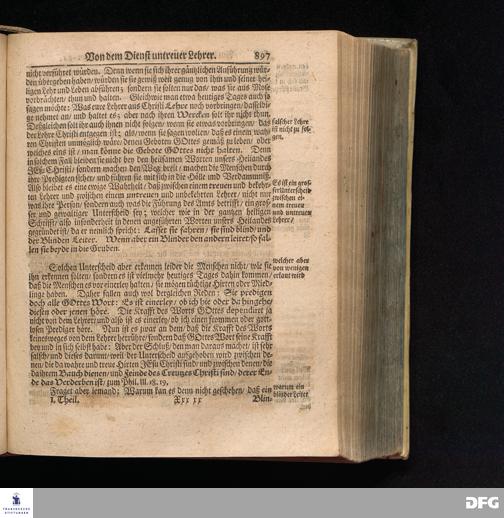 Von dem Dienst untreuer Lehrer. 897
nicht verführet würden. Denn wenn sie sich ihrer gäntzlichen Anführung wür-
den übergeben haben/ würden sie sie gewiß weit genug von Ihm und seiner hei-
ligen Lehr und Leben abführen; sondern sie sollen nur das/ was sie aus Mose
vorbrächten/ thun und halten. Gleich wie man etwa heutiges Tages auch so
sagen möchte: Was eure Lehrer aus Christi Lehre noch vorbringen/ dasselbi-
ge nehmet an/ und haltet es; aber nach ihren Wercken solt ihr nicht thun.
Deßgleichen solt ihr auch ihnen nicht folgen/ wenn sie etwas vorbringen/ das
der Lehre Christi entgegen ist; als/ wenn sie sagen wollen/ daß es einem wah-
ren Christen unmöglich wäre/ denen Geboten GOttes gemäß zu leben/ oder
welches eins ist/ man könne die Gebote GOttes nicht halten. Denn
in solchem Fall bleiben sie nicht bey den heilsamen Worten unsers Heilandes
JEsu Christi/ sondern machen den Weg breit/ machen die Menschen durch
ihre Predigten sicher/ und führen sie mit sich in die Hölle und Verdammniß.
Also bleibet es eine ewige Wahrheit/ daß zwischen einem treuen und bekehr-
ten Lehrer und zwischen einem untreuen und unbekehrten Lehrer/ nicht nur
was ihre Person/ sondern auch was die Führung des Amts betrifft/ ein gros-
ser und gewaltiger Unterscheid sey; welcher wie in der gantzen heiligen
Schrifft/ also insonderheit in denen angeführten Worten unsers Heilandes
gegründet ist/ da er nemlich spricht: Lasset sie fahren/ sie sind blind/ und
der Blinden Leiter. Wenn aber ein Blinder den andern leitet/ so fal-
len sie beyde in die Gruben.
falscher Lehre
ist nicht zu fol-
gen.
Es ist ein gros-
ser Unterscheid
zwischen ei-
nem treuen
und untreuen
Lehrer/
Solchen Unterscheid aber erkennen leider die Menschen nicht/ wie sie
ihn erkennen solten/ sondern es ist vielmehr heutiges Tages dahin kommen/
daß die Menschen es vor einerley halten/ sie mögen tüchtige Hirten oder Mied-
linge haben. Daher fallen auch wol dergleichen Reden: Sie predigen
doch alle GOttes Wort: Es ist einerley/ ob ich hie oder da hingehe/
diesen oder jenen höre. Die Krafft des Worts GOttes dependiret ja
nicht von dem Lehrer/ und also ist es einerley/ ob ich einen frommen oder gott-
losen Prediger höre. Nun ist es zwar an dem/ daß die Krafft des Worts
keinesweges von dem Lehrer herrühre/ sondern daß GOttes Wort seine Krafft
vor und in sich selbst habe: Aber der Schluß/ den man daraus machet/ ist sehr
falsch/ und dieses darum/ weil der Unterscheid aufgehoben wird zwischen de-
nen/ die da wahre und treue Hirten JEsu Christi sind/ und zwischen denen/ die
da ihrem Bauch dienen/ und Feinde des Creutzes Christi sind/ derer En-
de das Verderben ist/ zum Phil. III. 18. 19.
welcher aber
von wenigen
erkant wird
Fraget aber jemand: Warum kan es denn nicht geschehen/ daß ein
warum ein
blinder Leiter
I. Theil. Xxx xx Blin-
FRANCKESCHE
STIFTUNGEN
DFG